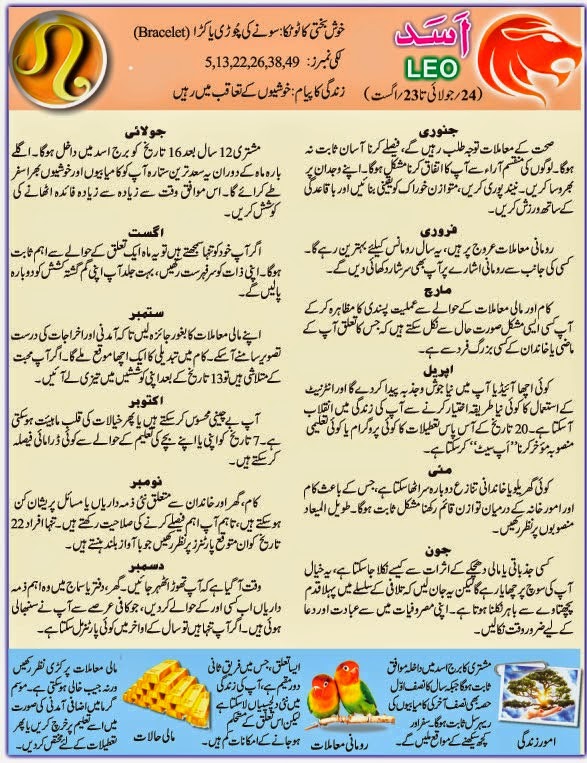 اَسَد
LEO
(24؍جولائی تا 23؍اگست)
خوش بختی کا ٹوٹکا: سونے کی چوڑی یا کڑا (Bracelet)
لکی نمبرز: 5,13,22,26,38,49
زندگی کا پیام: خوشیوں کے تعاقب میں رہیں
جنوری
صحت کے معاملات توجہ طلب رہیں گے، فیصلے کرنا آسان ثابت نہ
ہوگا۔ لوگوں کی منقسم آراء سے آپ کا اتفاق کرنا مشکل ہوگا۔ اپنے وجدان پر
بھروسا کریں۔ نیند پوری کریں، متوازن خوراک کو یقینی بنائیں اور باقاعدگی
کے ساتھ ورزش کریں۔
فروری
رومانی معاملات عروج پر ہیں، یہ سال رومانس کیلئے بہترین رہے گا۔
کسی کی جانب سے رومانی اشارے پر آپ بھی سرشار دکھائی دیں گے۔
مارچ
کام اور مالی معاملات کے حوالے سے عملیت پسندی کا مظاہرہ کرکے
آپ کسی ایسی مشکل صورت حال سے نکل سکتے ہیں کہ جس کا تعلق آپ کے
ماضی یا خاندان کے کسی بزرگ فرد سے ہے۔
اپریل
کوئی اچھا آئیڈیا آپ میں نیا جوش و جذبہ پیدا کردے گا اور انٹرنیٹ
کے استعمال کا کوئی نیا طریقہ اختیار کرنے سے آپ کی زندگی میں انقلاب
آسکتا ہے۔ 20 تاریخ کے آس پاس تعطیلات کا کوئی پروگرام یا کوئی تعلیمی
منصوبہ مؤخر کرنا ’’اَپ سیٹ‘‘ کرسکتا ہے۔
مئی
کوئی گھریلو یا خاندانی تنازع دوبارہ سر اٹھا سکتا ہے، جس کے باعث کام
اور امور خانہ کے درمیان توازن قائم رکھنا مشکل ثابت ہوگا۔ طویل المیعاد
منصوبوں پر نظر رکھیں۔
جون
کسی جذباتی یا مالی دھچکے کے اثرات سے کیسے نکلا جاسکتا ہے، یہ خیال
آپ کی سوچ پر چھایا رہے گا لیکن یہ جان لیں کہ تلافی کے سلسلے میں پہلا قدم
پچھتاوے سے باہر نکلنا ہوتا ہے۔ اپنی مصروفیات میں سے عبادت اور دعا
کے لیے ضرور وقت نکالیں۔
جولائی
مشتری 12 سال بعد 16 تاریخ کو برج اسد میں داخل ہوگا۔ اگلے
بارہ ماہ کے دوران یہ سعد ترین ستارہ آپ کو کامیابیوں اور خوشیوں بھرا سفر
طے کرائے گا۔ اس موافق وقت سے زیادہ سے زیادہ فائدہ اٹھانے کی
کوشش کریں۔
اگست
اگر آپ خود کو تنہا سمجھتے ہیں تو یہ ماہ ایک تعلق کے حوالے سے اہم ثابت
ہوگا۔ اپنی ذات کو سرفہرست رکھیں، بہت جلد آپ اپنی گم گشتہ کشش کو دوبارہ
پالیں گے۔
ستمبر
اپنے مالی معاملات کا بغور جائزہ لیں تاکہ آمدنی اور اخراجات کی درست
تصویر سامنے آسکے۔ کام میں تبدیلی کا ایک اچھا موقع ملے گا۔ اگر آپ محبت
کے متلاشی ہیں تو 13 تاریخ کے بعد اپنی کوششیں میں تیزی لے آئیں۔
اکتوبر
آپ بے چینی محسوس کرسکتے ہیں یا پھر خیالات کی قلب ماہیئت ہوسکتی
ہے۔ 7 تاریخ کو اپنی یا اپنے بچے کی تعلیم کے حوالے سے کوئی ڈرامائی فیصلہ
کرسکتے ہیں۔
نومبر
کام، گھر اور خاندان سے متعلق نئی ذمہ داریاں یا مسائل پریشان کن
ہوسکتے ہیں، تاہم آپ اہم فیصلے کرنے کی صلاحیت رکھتے ہیں۔ تنہا افراد 22
تاریخ کو ان متوقع پارٹنرز پر نظر رکھیں جو با آواز بلند ہنستے ہیں۔
دسمبر
وقت آگیا ہے کہ آپ تھوڑا ٹھہر جائیں۔ گھر، دفتر یا سماج میں وہ اہم ذمہ
داریاں اب کسی اور کے حوالے کردیں، جو کافی عرصے سے آپ نے سنبھالی
ہوئی ہیں۔ اگر آپ تنہا ہیں تو سال کے اواخر میں کوئی پارٹنر مل سکتا ہے۔
مشتری کا برج اسد میں داخلہ موافق
ثابت ہوگا جبکہ سال کا نصف اوّل
حصہ بھی نصف آخر کی کامیابیوں کی
ریہرسل ثابت ہوگا۔ سفر اور
کچھ سیکھنے کے مواقع ملیں گے۔
امور زندگی
ایسا تعلق، جس میں فریق ثانی
دور مقیم ہے، آپ کی زندگی
میں نئی دلچسپیاں لاسکتا ہے
لیکن اس تعلق کے مستحکم
ہوجانے کے امکانات کم ہیں۔
رومانی معاملات
مالی معاملات پر کڑی نظر رکھیں
ورنہ جیب خالی ہوسکتی ہے۔ موسم
گرما میں اضافی آمدنی کی صورت
میں اسے تعلیم پر خرچ کریں یا پھر
تعطیلات کے لئے مختص کردیں۔
مالی حالات